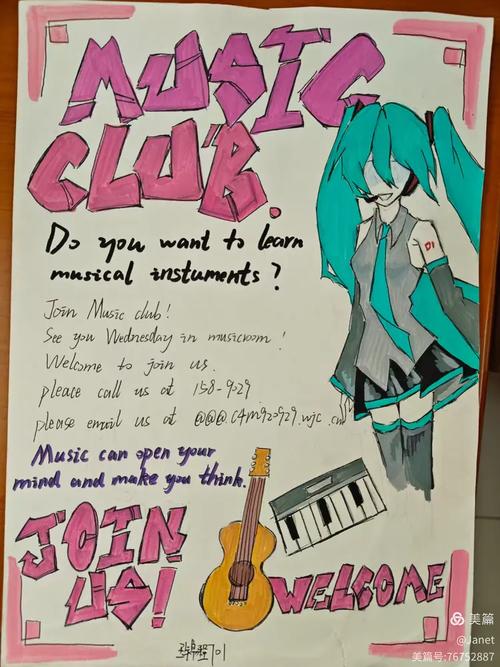 MUSIC
CLUB.
Do you want to learn
musical instuments?
Join Music club!
See you Wednesday in musicroom!
Welcome to join us.
pleace call us at 158-9029
please email us at @@@
Music can open your
mind and make you think.
JOIN
US!
WELCOME
01
美篇
@Janet
美篇号:76752887